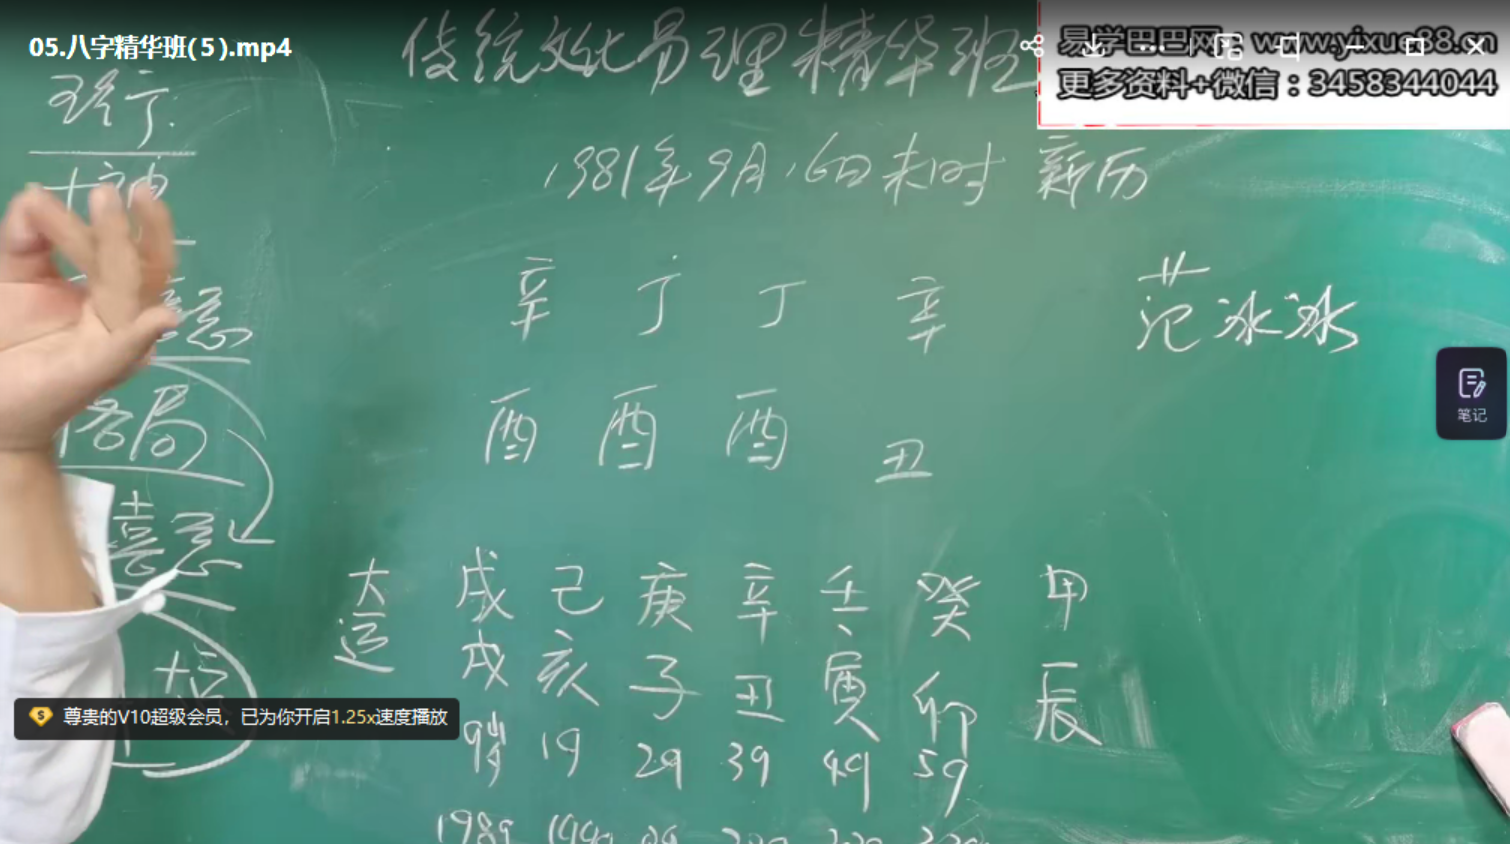 05.八字精华班(5).mp4
传统文化易理精华班
易学巴巴网：www.yixue88.cn
更多资料+微信：3458344044
十神
1981年9月16日未时 新历
辛 丁 丁 辛
范冰冰
格局
酉 酉 酉 丑
喜忌
笔记
大运
戊 己 庚 辛 壬 癸 甲
戌 亥 子 丑 寅 卯 辰
9岁 19 29 39 49 59
尊贵的V10超级会员，已为你开启1.25x速度播放
1989